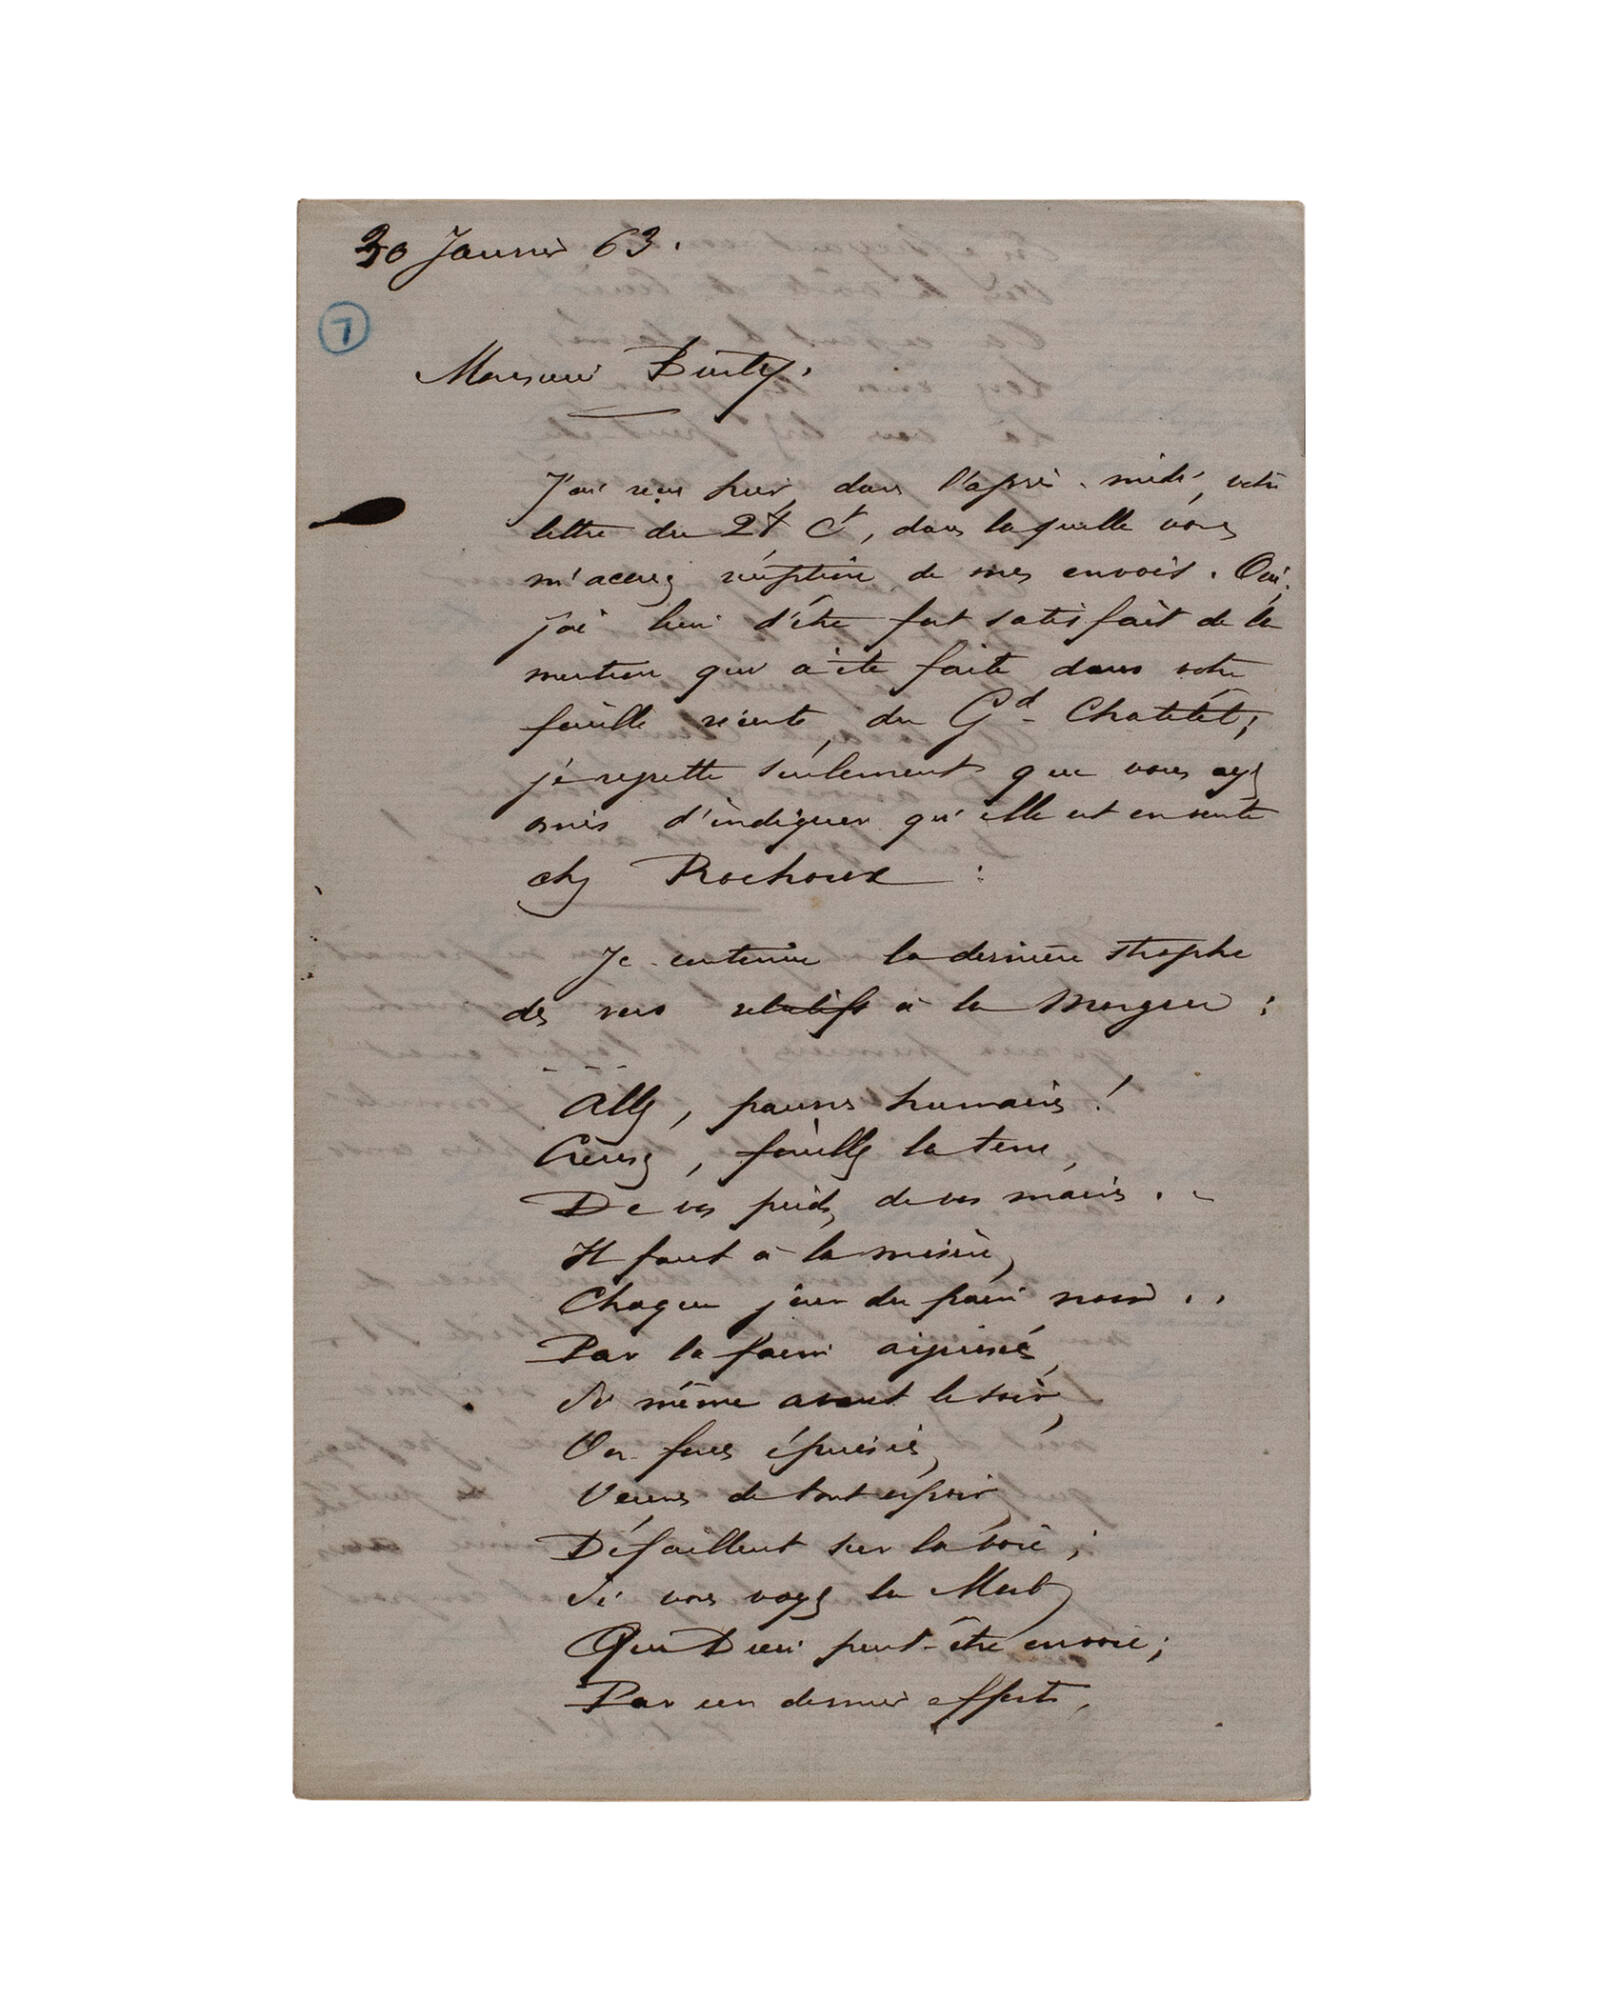 30 Janvier 63.
7
Monsieur Burty,
J'ai reçu hier, dans l'après-midi, votre
lettre du 28 Ct, dans laquelle vous
m'accusez réception de mes envois. Oui,
j'ai lieu d'être fort satisfait de la
mention qui a été faite dans votre
feuille récente, du Gd Chatelet;
je regrette seulement que vous ayez
omis d'indiquer qu'elle est en vente
chez Rochoux :
Je continue la dernière strophe
des vers relatifs à la Morgue :
Allez, pauvres humains !
Creusez, fouillez la terre,
De vos pieds, de vos mains . .
Il faut à la misère,
Chaque jour du pain noir . .
Par la faim
Si même avant le soir,
Vos forces épuisées,
Veuves de tout espoir,
Défaillent sur la voie ;
Si vous voyez la Mort,
Que Dieu peut-être envoie ;
Par un dernier effort,